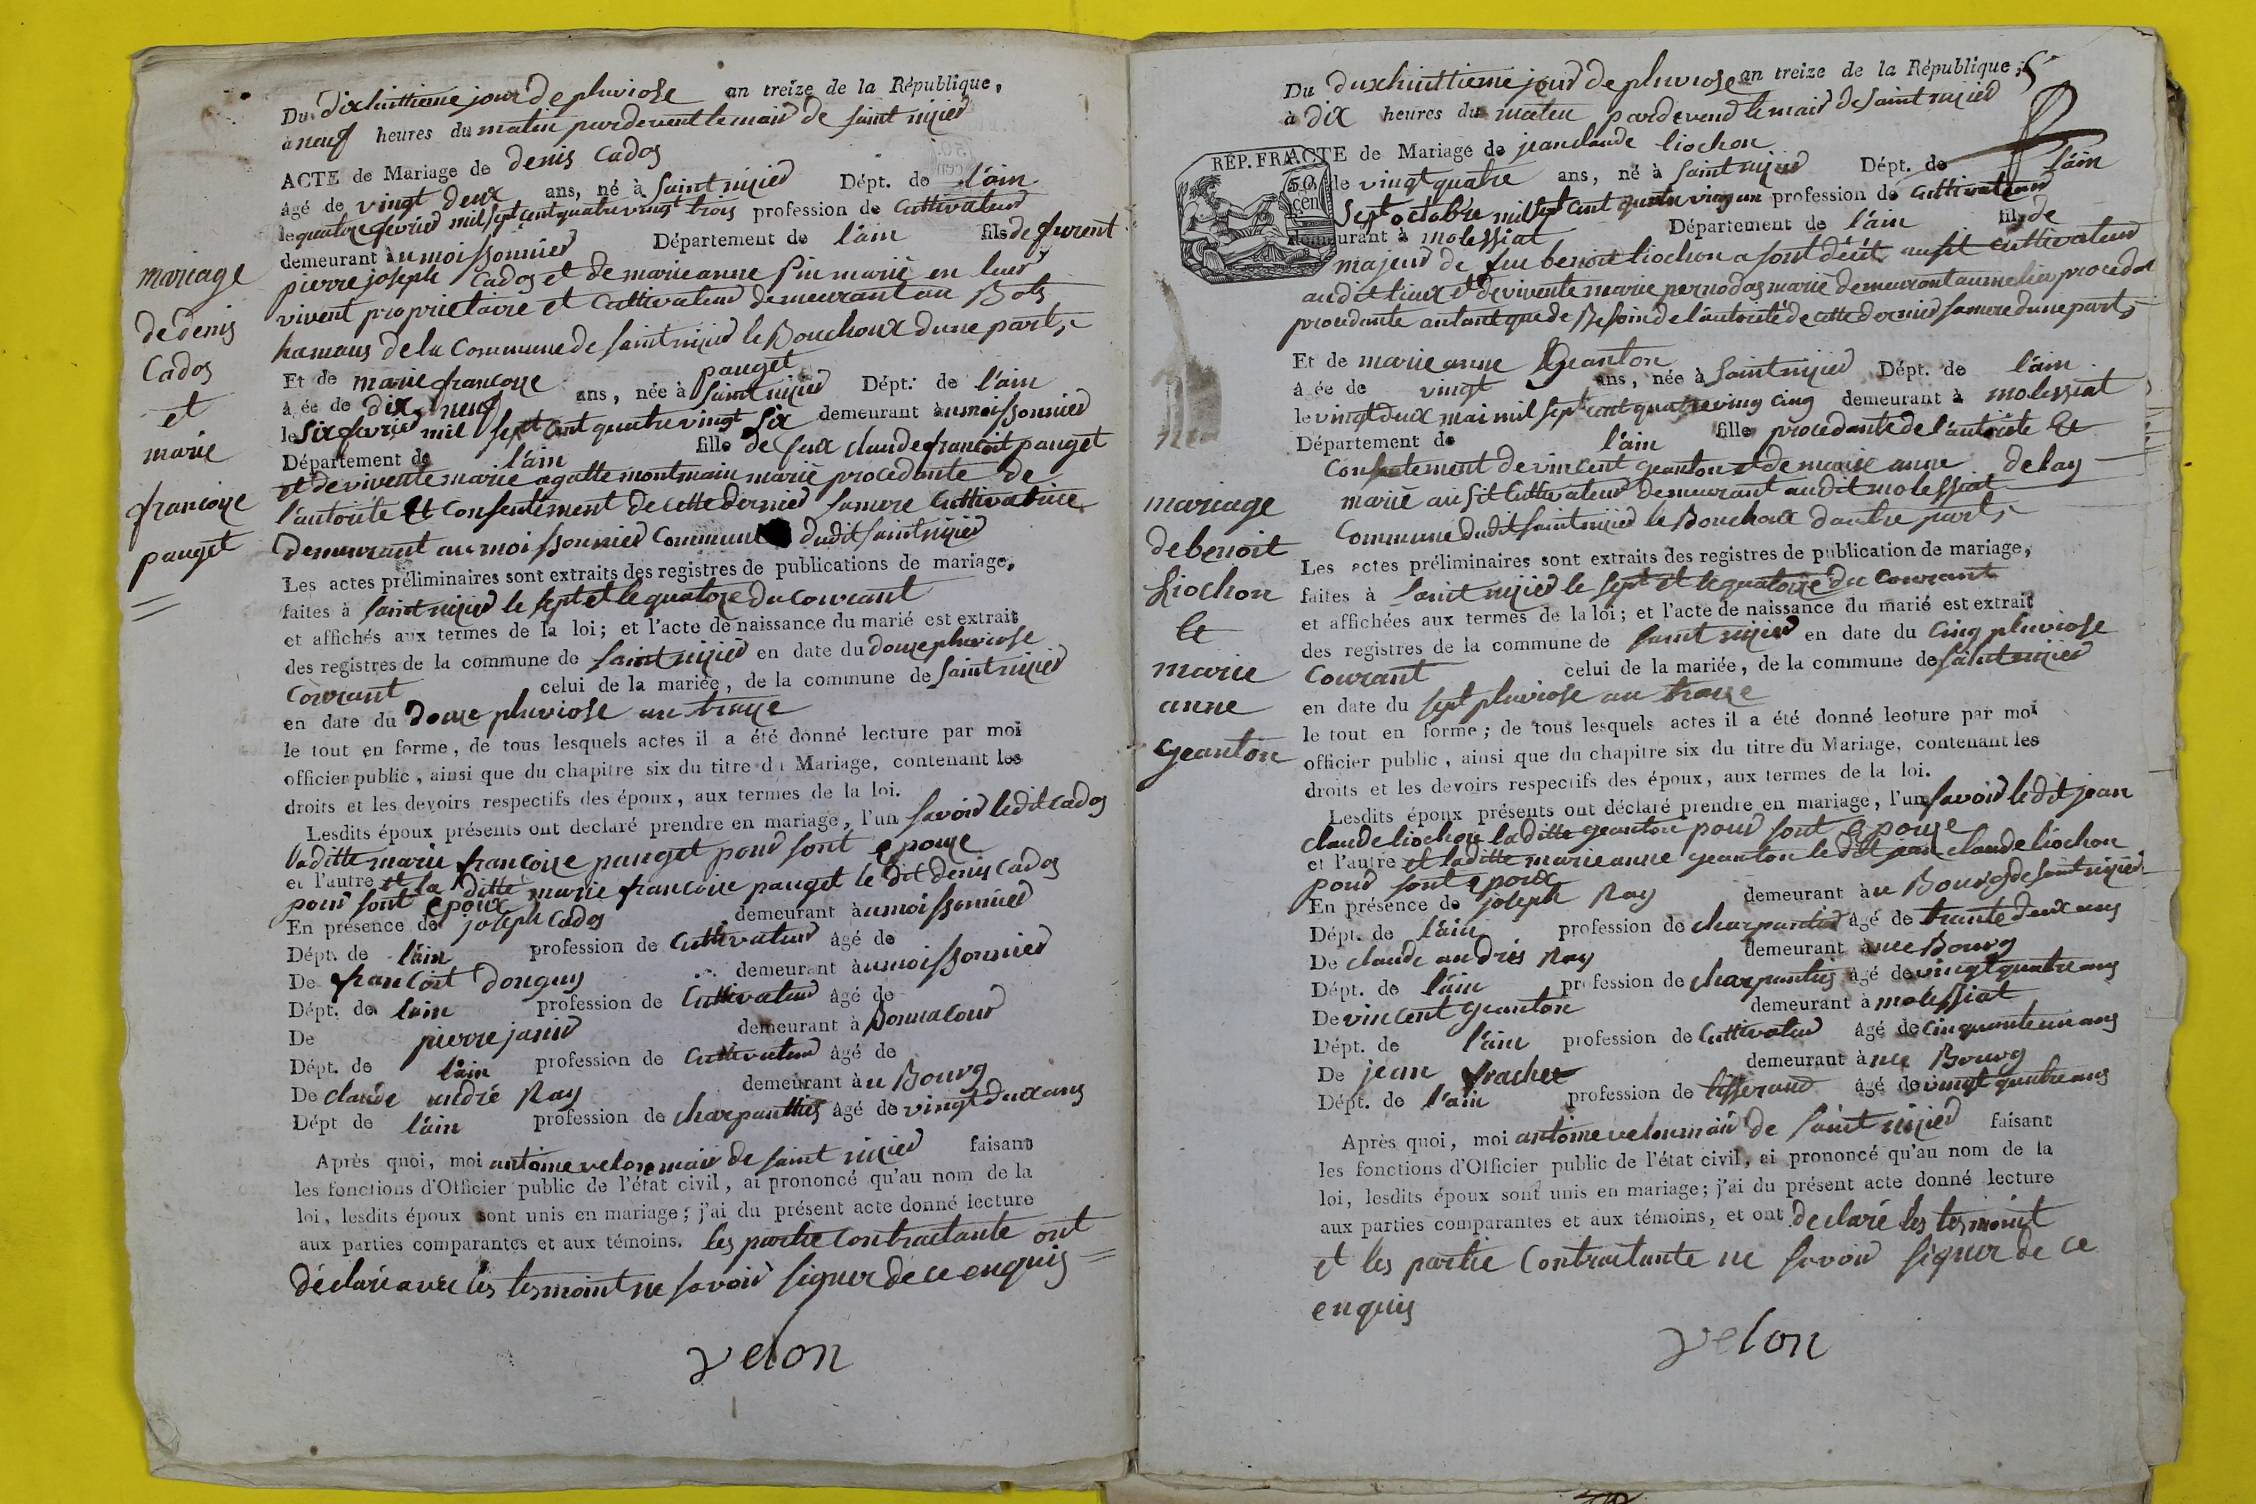 Du dixhuittieme jour de pluviose an treize de la République,
à neuf heures du matin pardevent le maire de saint nizier
ACTE de Mariage de denis Cados
âgé de vingt deux ans, né à saint nizier Dépt. de l'ain
le quatorze fevrier mil sept cent quatre vingt trois profession de Cultivateur
demeurant au moissonnier Département de l'ain fils de furent
pierre joseph Cados et de marie anne Pin marié en leur
vivent proprietaire et Cultivateur demeurant au Bots
hamaus de la Commune de saint nizier le Bouchoux dune part,
mariage
de denis
Cados
et
marie
francoise
pauget
Et de marie francoise pauget
à ée de dix neuf ans, née à saint nizier Dépt. de l'ain
le six fevrier mil sept cent quatre vingt six demeurant au moissonnier
Département de l'ain fille de feux claude francoit pauget
et de vivente marie agatte montmain marié procedante de
l'autorité Et Consentement de cette dernier sa mere Cultivatrice
demeurant au moissonnier Commune dudit saint nizier
Les actes préliminaires sont extraits des registres de publications de mariage,
faites à saint nizier le sept et le quatorze du Courant
et affichés aux termes de la loi; et l'acte de naissance du marié est extrait
des registres de la commune de saint nizier en date du douze pluviose
Courant celui de la mariée, de la commune de saint nizier
en date du douze pluviose an traize
le tout en forme, de tous lesquels actes il a été donné lecture par moi
officier public, ainsi que du chapitre six du titre du Mariage, contenant les
droits et les devoirs respectifs des époux, aux termes de la loi.
Lesdits époux présents ont declaré prendre en mariage, l'un savoir ledit Cados
laditte marie francoise pauget pour sont epouze
et l'autre et la ditte marie francoise pauget le dit denis Cados
pour sont epoux
En présence de joseph Cados demeurant au moissonnier
Dépt. de l'ain profession de Cultivateur âgé de
De francoit donguy demeurant au moissonnier
Dépt. de l'ain profession de Cultivateur âgé de
De pierre janin demeurant à Bonnacour
Dépt. de l'ain profession de Cultivateur âgé de
De claude andré Ray demeurant au Bourg
Dépt de l'ain profession de charpanttier âgé de vingt deux ans
Après quoi, moi antoine velon maire de saint nizier faisant
les fonctions d'Officier public de l'état civil, ai prononcé qu'au nom de la
loi, lesdits époux sont unis en mariage; j'ai du présent acte donné lecture
aux parties comparantes et aux témoins. les partie Contractante ont
déclaré avec les tesmoint ne savoir signer de ce enquis
velon
Du duxhuittieme jour de pluviose an treize de la République,
à dix heures du maten pardevend le maire de saint nizier
RÉP. FRA
50
cen
ACTE de Mariage de jean claude liochon
de vingt quatre ans, né à saint nizier Dépt. de l'ain
sept octobre mil sept cent quatre ving un profession de Cultivateur
demeurant à molessiat Département de l'ain fils de
majeur de feu benoit liochon a sont décit ausit Cultivateur
audit lieux et de vivente marie pernodas marié demeurant au me lieu procedat
procedante autant que de Besoin de l'autorité de cette dernier sa mere dune part,
Et de marie anne Geanton
à ée de vingt ans, née à saint nizier Dépt. de l'ain
le vingt deux mai mil sept cent quatre ving cinq demeurant à molessiat
Département de l'ain fille procedante de l'autorité Et
Consentement de vincent geanton et de marie anne delay
marié ausit Cultivateur demeurant audit molessiat
Commune dudit saint nizier le Bouchoux dautre part,
mariage
de benoit
Liochon
Et
marie
anne
geanton
Les actes préliminaires sont extraits des registres de publication de mariage,
faites à saint nizier le sept et le quatorze du Courant
et affichées aux termes de la loi; et l'acte de naissance du marié est extrait
des registres de la commune de saint nizier en date du Cinq pluviose
Courant celui de la mariée, de la commune de saint nizier
en date du sept pluviose an traize
le tout en forme; de tous lesquels actes il a été donné lecture par moi
officier public, ainsi que du chapitre six du titre du Mariage, contenant les
droits et les devoirs respectifs des époux, aux termes de la loi.
Lesdits époux présents ont déclaré prendre en mariage, l'un savoir le dit jean
claude liochon laditte geanton pour sont Epouze
et l'autre et laditte marie anne geanton le dit jean claude liochon
pour sont epoux
En présence de joseph Ray demeurant au Bourg de saint nizier
Dépt. de l'ain profession de charpantier âgé de trante deux ans
De claude andrés Ray demeurant à ue Bourg
Dépt. de l'ain profession de charpantier âgé de vingt quatre ans
De vincent geanton demeurant à molessiat
Dépt. de l'ain profession de Cultivateur âgé de cinquante un ans
De jean frachet demeurant à ue Bourg
Dépt. de l'ain profession de tisserand âgé de vingt quatre ans
Après quoi, moi antoine velon maire de saint nizier faisant
les fonctions d'Officier public de l'état civil, ai prononcé qu'au nom de la
loi, lesdits époux sont unis en mariage; j'ai du présent acte donné lecture
aux parties comparantes et aux témoins, et ont declaré les tesmoint
et les partie Contractante ne savoir signer de ce
enquis
velon